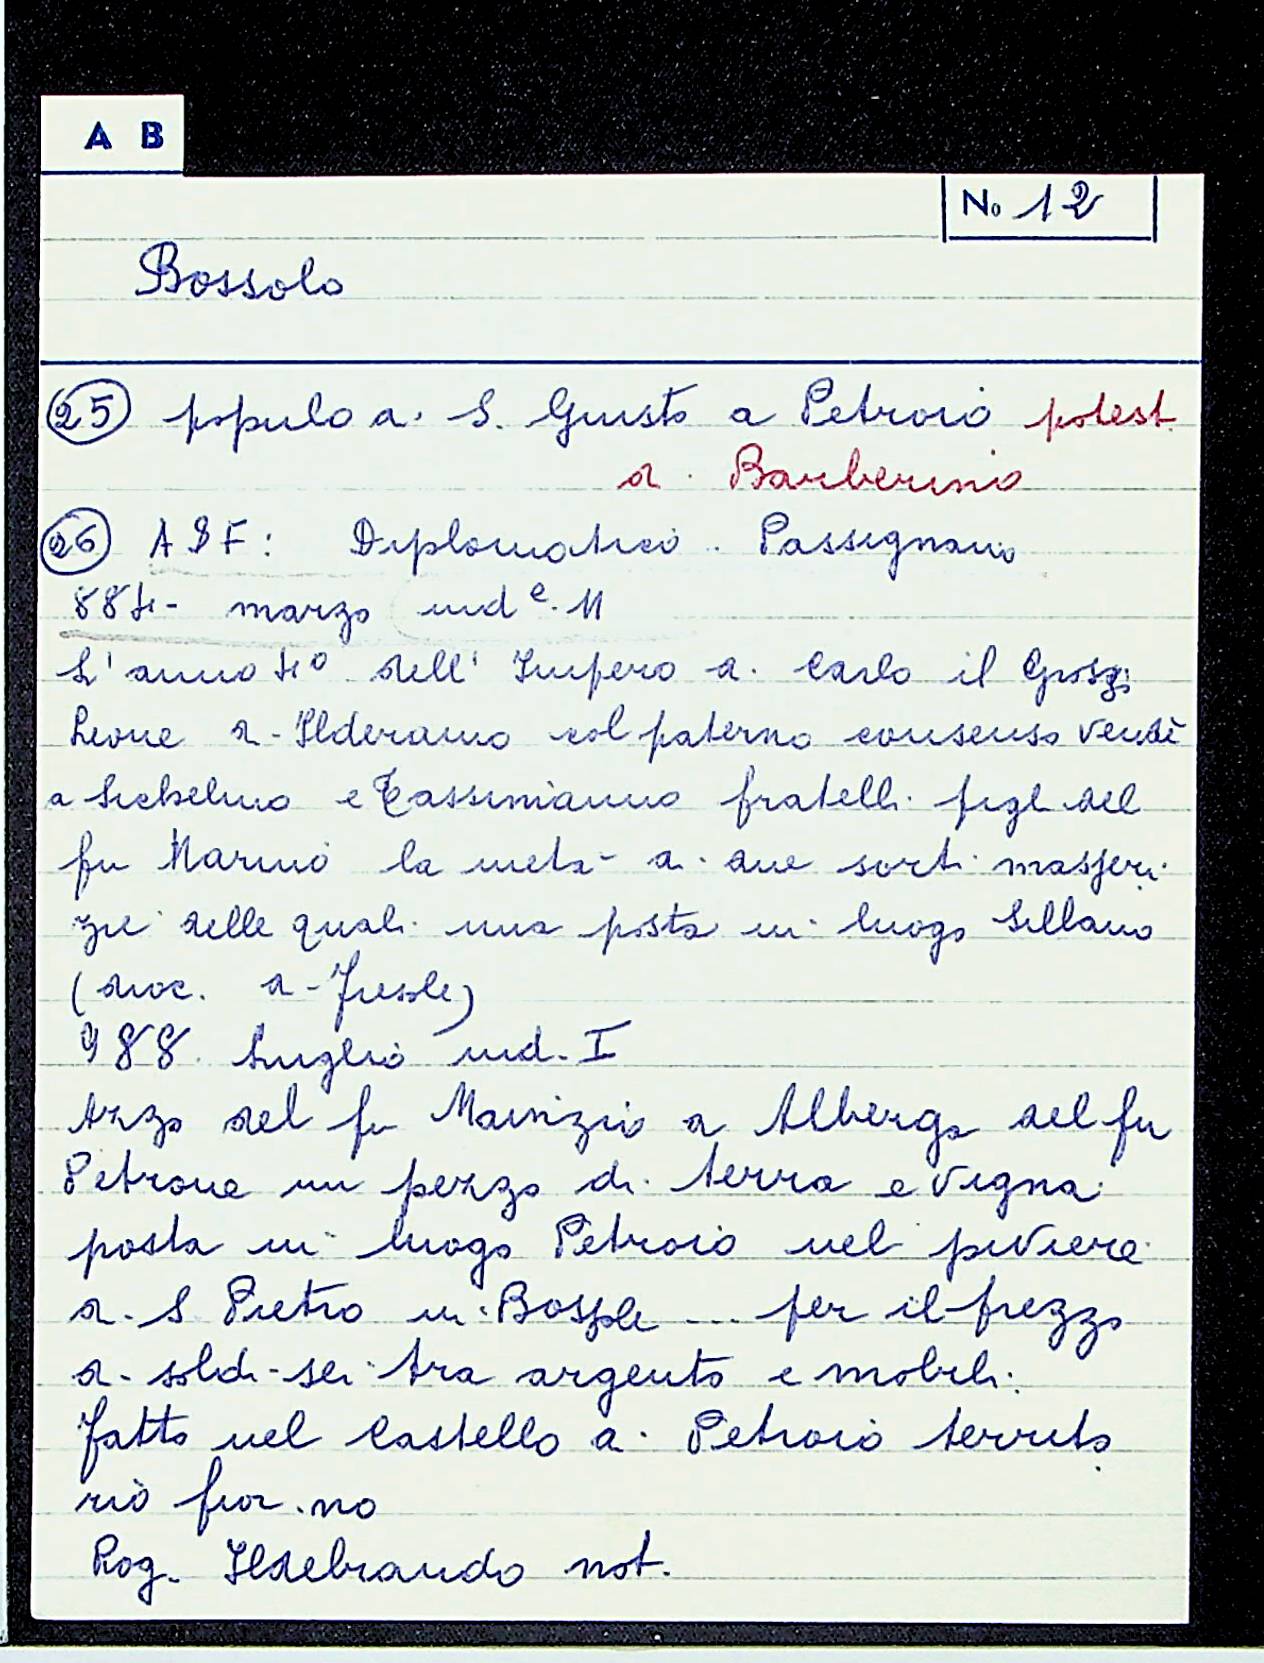 A B
No 12
Bossolo
25 popolo di S. Giusto a Petroio potest.
di Barberino
26 ASF: Diplomatico. Passignano
884 - marzo ind e. 11
L'anno 4° dell' Impero di Carlo il Grosso
Leone di Ilderamo col paterno consenso vendè
a Sichelmo e Tassimanno fratelli figl. del
fu Marino la metà di due sorti masseri
zie delle quali una posta in luogo Sillano
(dioc. di Fiesole)
988. Luglio ind. I
Azzo del fu Maurizio a Albergo del fu
Petrone un pezzo di terra e vigna
posta in luogo Petroio nel piviere
di S Pietro in Bossole ... per il prezzo
di soldi sei tra argento e mobili.
Fatto nel Castello di Petroio territo
rio fior.no
Rog. Ildebrando not.